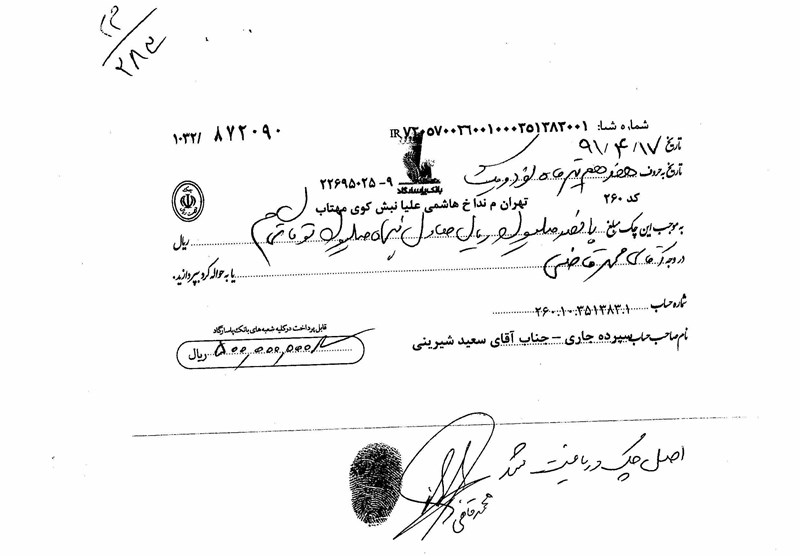 ۲۸۳
شماره شبا: IR۷۲۰۵۷۰۰۲۶۰۰۱۰۰۰۳۵۱۳۸۳۰۰۱
۱۰۳۲/ ۸۷۲۰۹۰
تاریخ ۹۱/۴/۱۷
تاریخ به حروف هفدهم تیر ماه نود و یک
بانک پاسارگاد
۲۲۶۹۵۰۲۵-۹
کد ۲۶۰
تهران م نداخ هاشمی علیا نبش کوی مهتاب
به موجب این چک مبلغ پانصد میلیون ریال معادل پنجاه میلیون تومان ریال
در وجه آقای محمد قاضی یا به حواله کرد بپردازید.
شماره حساب ۲۶۰.۱۰.۳۵۱۳۸۳.۱
قابل پرداخت در کلیه شعبه های بانک پاسارگاد
نام صاحب حساب سپرده جاری - جناب آقای سعید شیرینی
۵۰۰,۰۰۰,۰۰۰ ریال
اصل چک دریافت شد
محمد قاضی